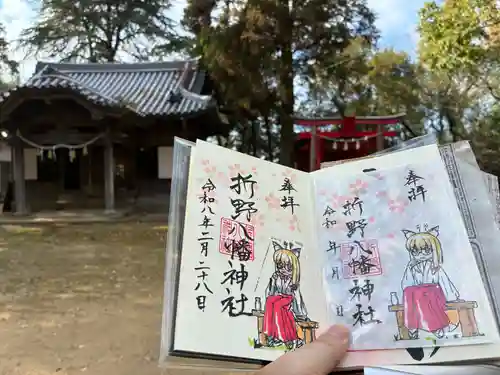 奉拝
折野八幡神社
令和八年二月二十二日
奉拝
折野八幡神社
令和 年 月 日